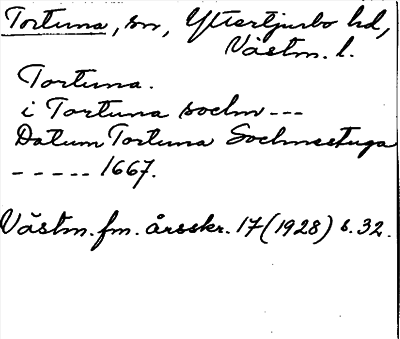 Tortuna, sn, Yttertjurbo hd,
Västm. l.
Tortuna.
i Tortuna sochn ---
Datum Tortuna Sochnestuga
----- 1667.
Västm. fm. årsskr. 17 (1928) s. 32.